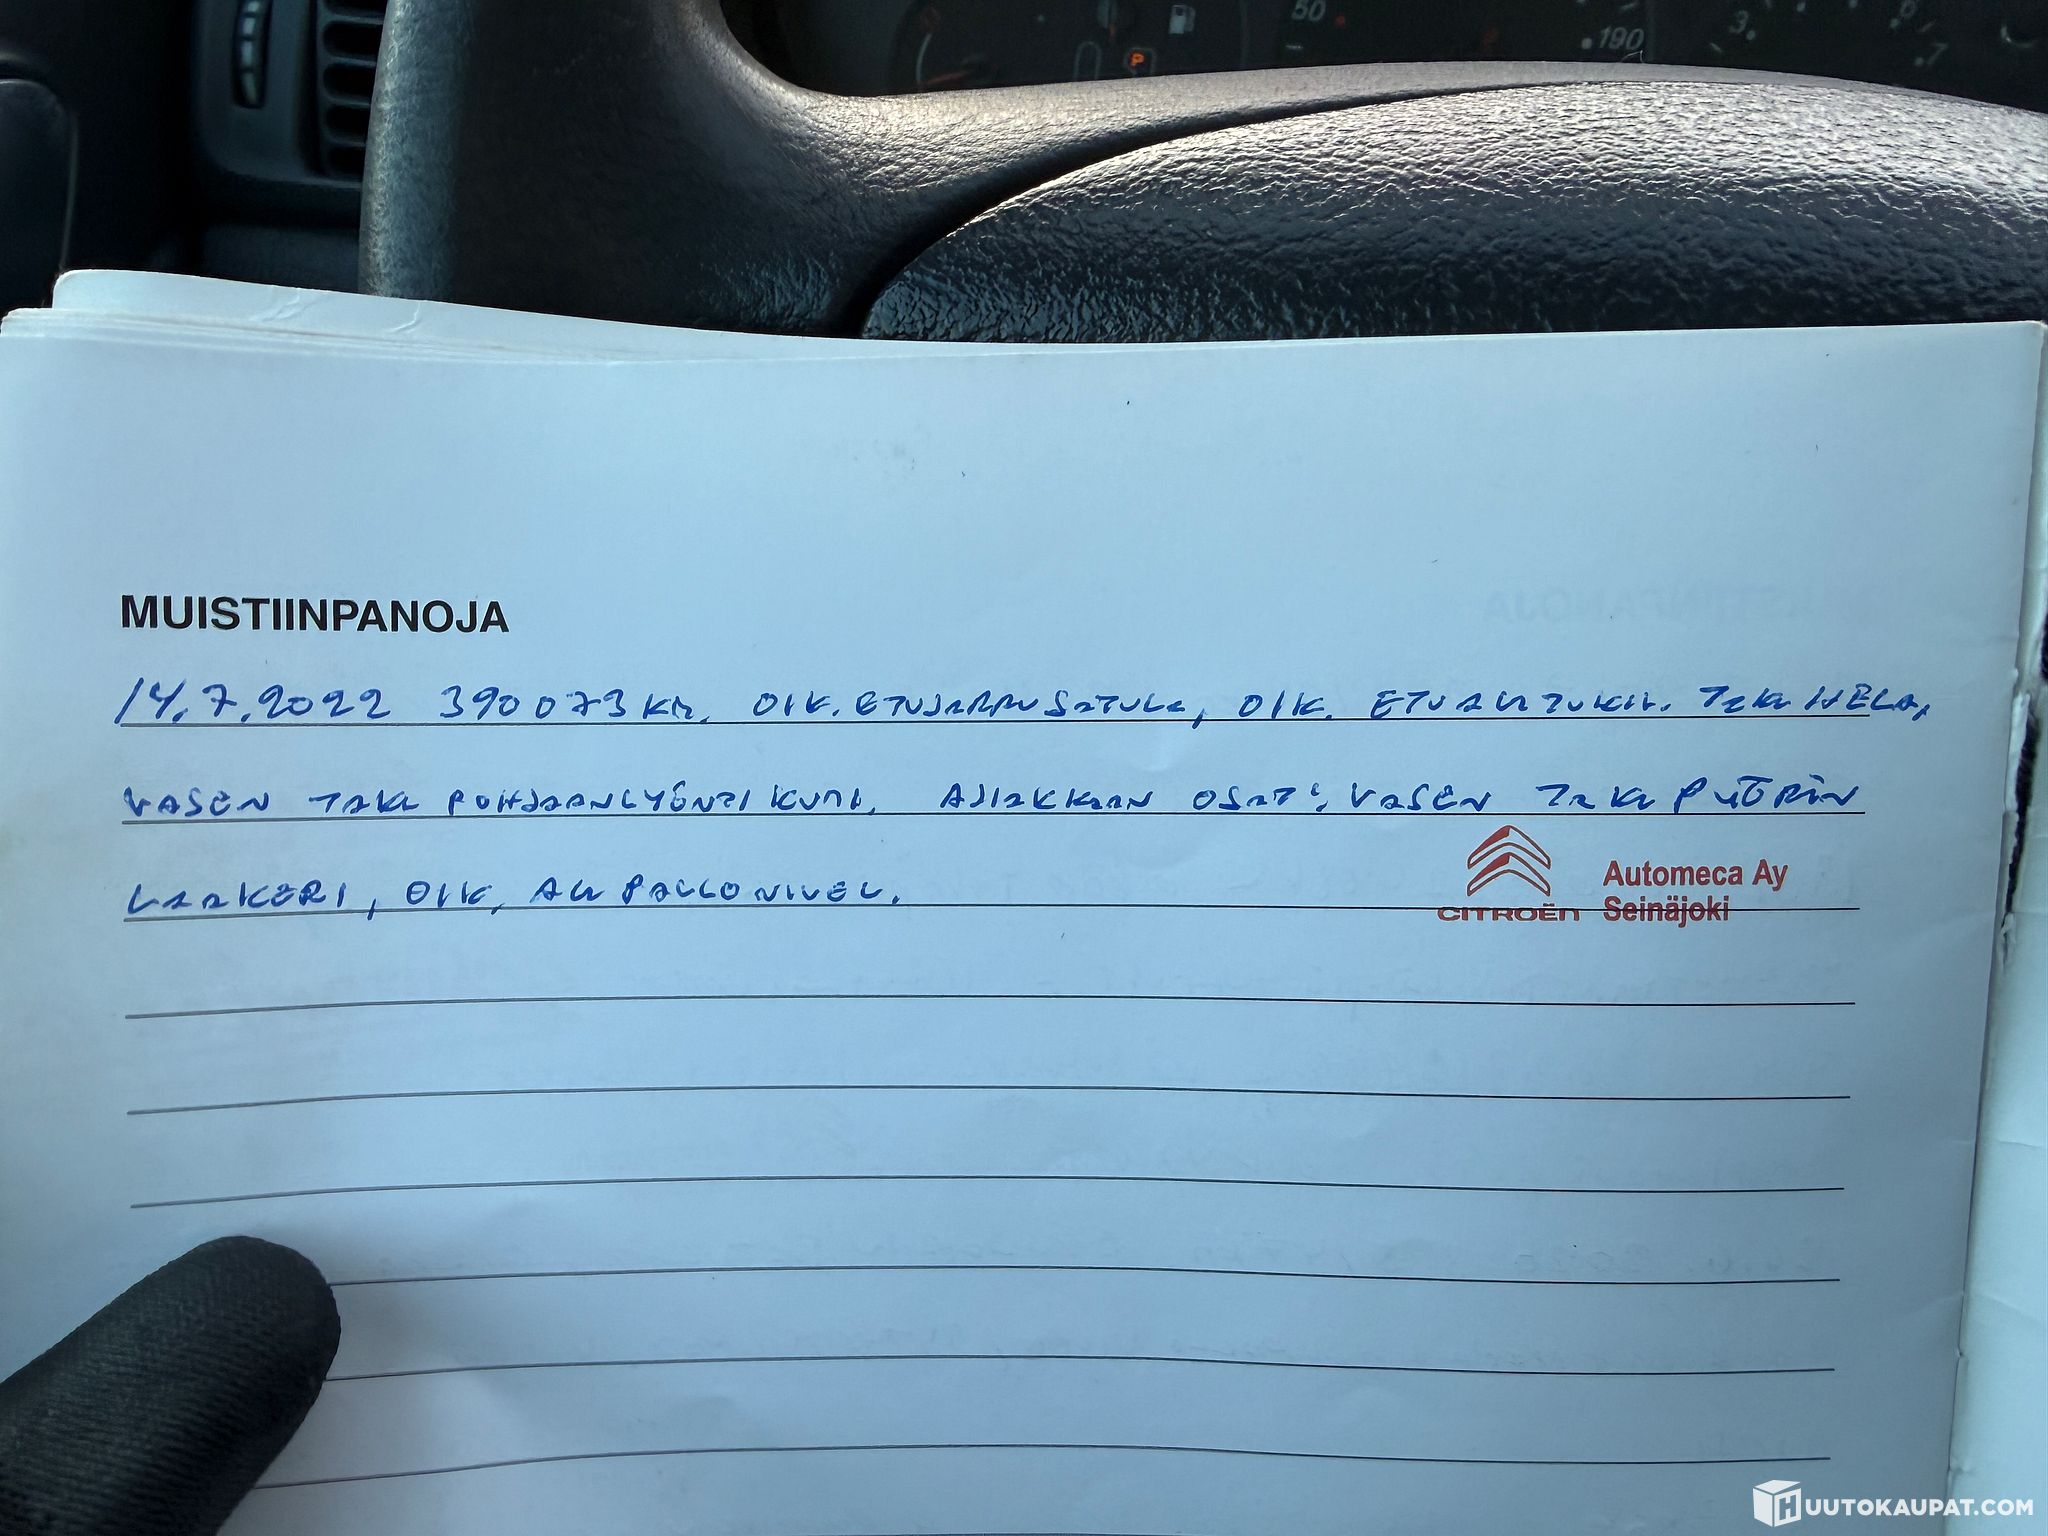 50
190
P
3
6
7
MUISTIINPANOJA
14.7.2022 390073 KM. OIK. ETUJARRUSATULA, OIK. ETUALATUKIV. TAKAHELA,
VASEN TAKA POHJAANLYÖNTIKUMI. ASIAKKAAN OSAT: VASEN TAKAPYÖRÄN
LAAKERI, OIK. ALAPALLONIVEL.
CITROËN
Automeca Ay
Seinäjoki
HUUTOKAUPAT.COM